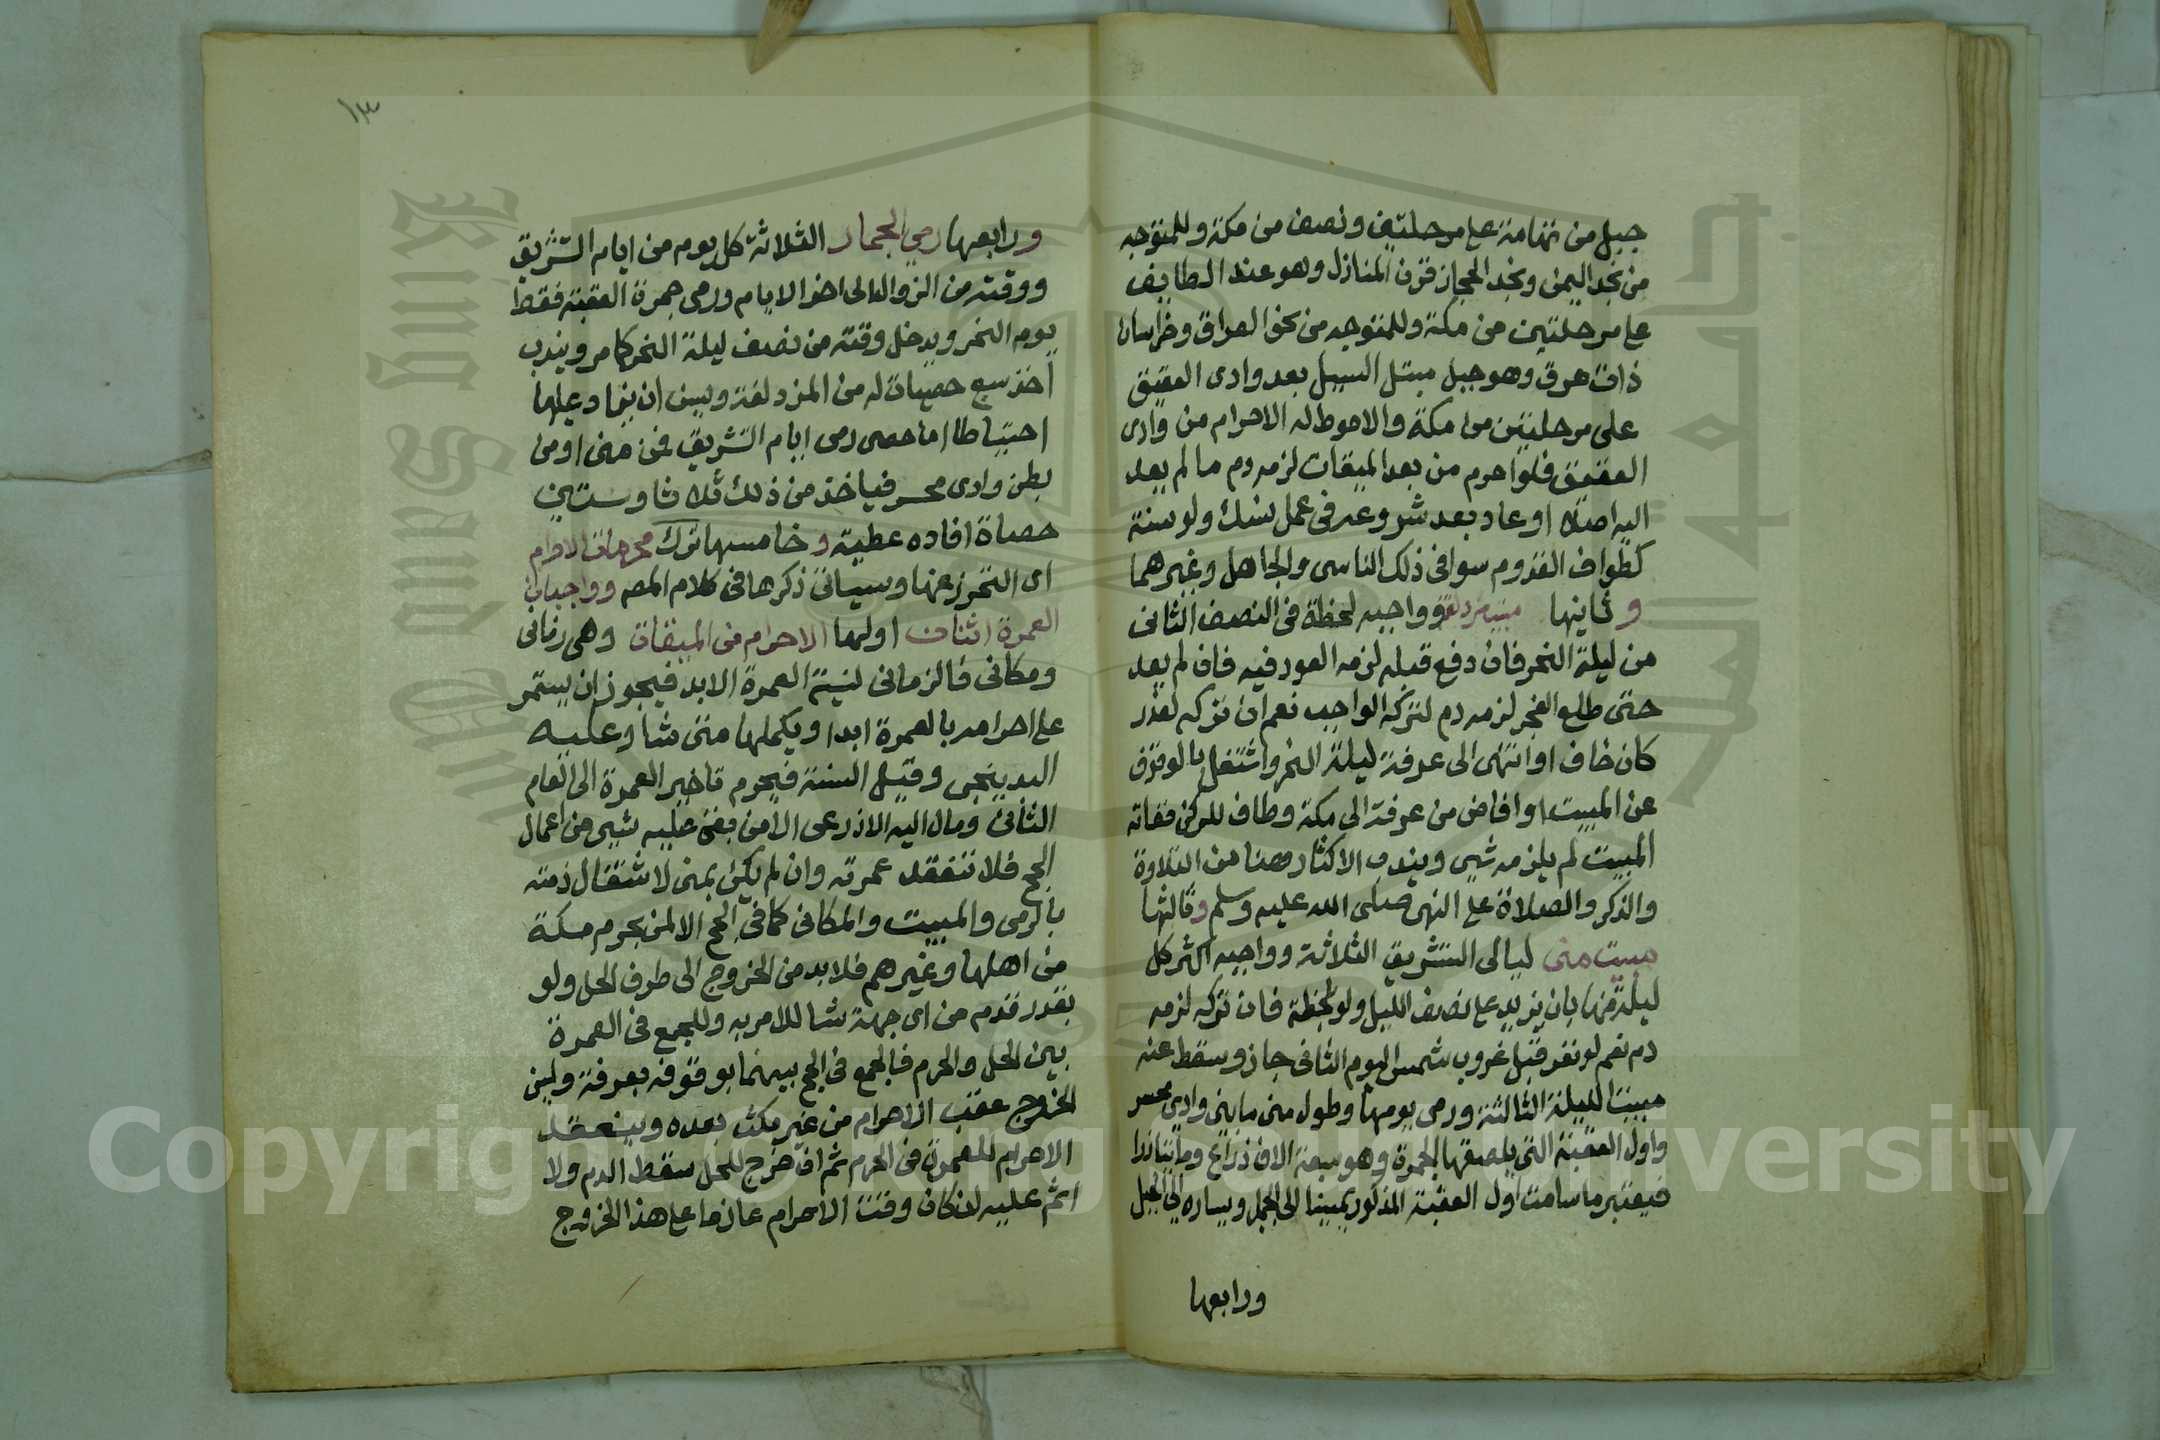 جبل من تهامة على مرحلتين ونصف من مكة وللمتوجه
من نجد اليمن ونجد الحجاز قرن المنازل وهو عند الطايف
على مرحلتين من مكة وللمتوجه من نحو العراق وخراسان
ذات عرق وهو جبل السيل بعد وادى العقيق
على مرحلتين من مكة والاحوط له الاحرام من وادى
العقيق فلو احرم من بعد الميقات لزمه دم ما لم يعد
اليه اصلا او عاد بعد شروعه فى عمل نسك ولو سنة
كطواف القدوم سوا فى ذلك الناسى والجاهل وغيرهما
وثانيها مبيت مزدلفة وواجبه لحظة فى النصف الثانى
من ليلة النحر فان دفع قبله لزمه العود فيه فان لم يعد
حتى طلع الفجر لزمه دم لتركه الواجب نعم ان تركه لعذر
كان خاف او انتهى الى عرفة ليلة النحر واشتغل بالوقوف
عن المبيت او افاض من عرفة الى مكة وطاف للركن ففاته
المبيت لم يلزمه شيى ويندب الاكثار هنا من التلاوة
والذكر والصلاة على النبى صلى الله عليه وسلم وثالثها
مبيت منى ليالى التشريق الثلاثة وواجبه اكثر كل
ليلة منها بان يزيد على نصف الليل ولو لحظة فان تركه لزمه
دم نعم لو نفر قبل غروب شمس اليوم الثانى جاز وسقط عنه
مبيت الليلة الثالثة ورمى يومها وطول منى ما بين وادى محسر
واول العقبة التى بلصقها الجمرة وهو سبعة الاف ذراع ومايتا ذراع
فيعتبر ما سامت اول العقبة المذكور يمينا الى الجبل ويساره الى الجبل
ورابعها
١٣
ورابعها رمى الجمار الثلاثة كل يوم من ايام التشريق
ووقته من الزوال الى اخر الايام ورمى جمرة العقبة فقط
يوم النحر ويدخل وقته من نصف ليلة النحر كما مر ويندب
اخذ سبع حصيات له من المزدلفة ويسن ان يزاد عليها
احتياطا اما حصى رمى ايام التشريق فمن منى او من
بطن وادى محسر فياخذ من ذلك ثلاثا وستين
حصاة افاده عطية وخامسها ترك محرمات الاحرام
اى التحرز عنها وسياتى ذكرها فى كلام المص وواجبات
العمرة اثنان اولها الاحرام من الميقات وهى زمانى
ومكانى فالزمانى لنية العمرة الابد فيجوز ان يستمر
على احرامه بالعمرة ابدا ويكملها متى شا وعليه
البدبنجى وقيل السنة فيحرم تاخير العمرة الى العام
الثانى ومال اليه الاذرعى الا من بقى عليه شيى من اعمال
الحج فلا تنعقد عمرته وان لم يكن بمنى لاشتغال ذمته
بالرمى والمبيت والمكانى كما فى الحج الا لمن بحرم مكة
من اهلها وغيرهم فلا بد من الخروج الى طرف الحل ولو
بقدر قدم من اى جهة شا للامر به وللجمع فى العمرة
بين الحل والحرم فالجمع فى الحج بينهما بوقوفه بعرفة ولمن
الخروج عقب الاحرام من غير مكث بعده وينعقد
الاحرام للعمرة فى الحرم ثم ان خرج للحل سقط الدم ولا
اثم عليه ان كان وقت الاحرام عازما على هذا الخروج